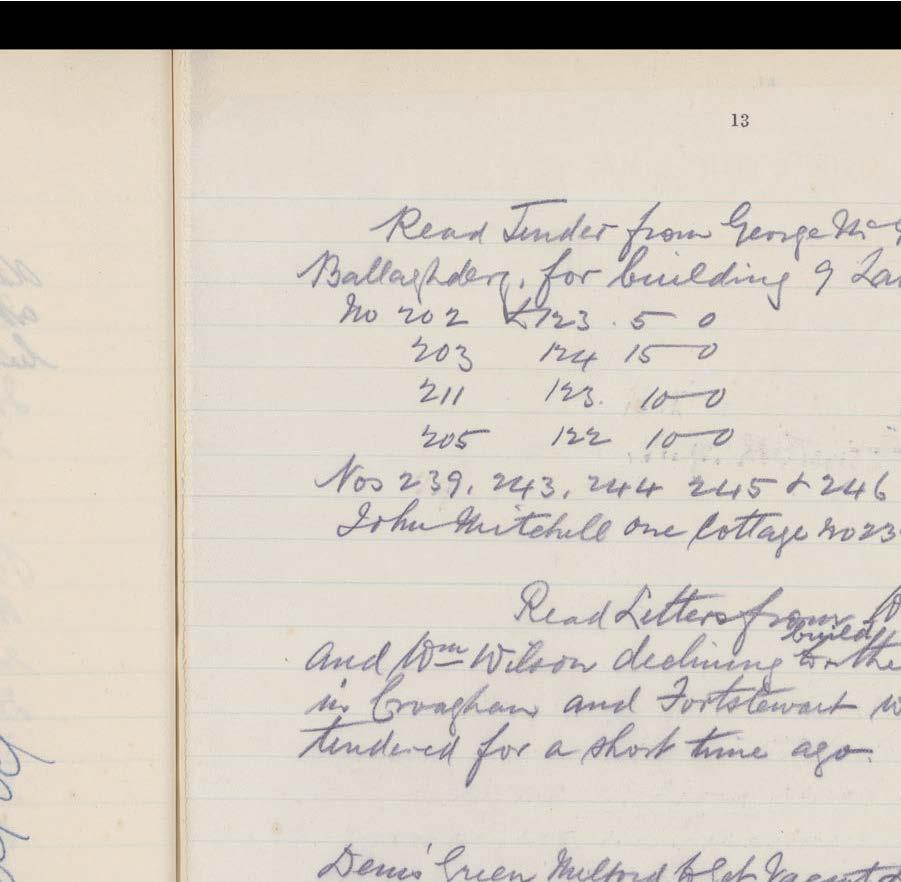 13
Read Tender from George Mc
Ballaghderg, for building 9 La
No 202 £123. 5 0
203 124 15 0
211 123. 10 0
205 122 10 0
Nos 239, 243, 244 245 & 246
John Mitchell one Cottage no 23
Read Letters from
build
And Wm Wilson declining to the
in Croaghan and Fortstewart w
tendered for a short time ago.
Denis Green Milford to get Vacant